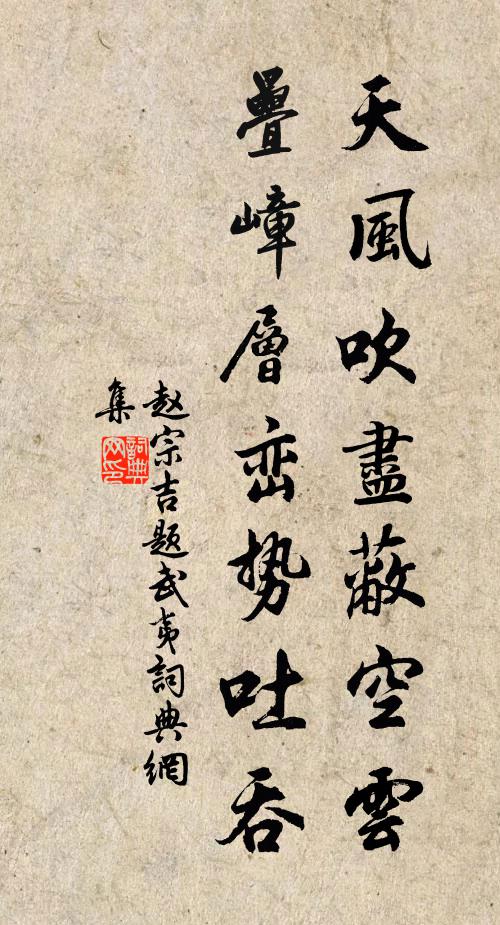 天風吹盡蔽空雲
疊嶂層峦势吐吞
赵宗吉题武夷詞典網
集
詞典
网印